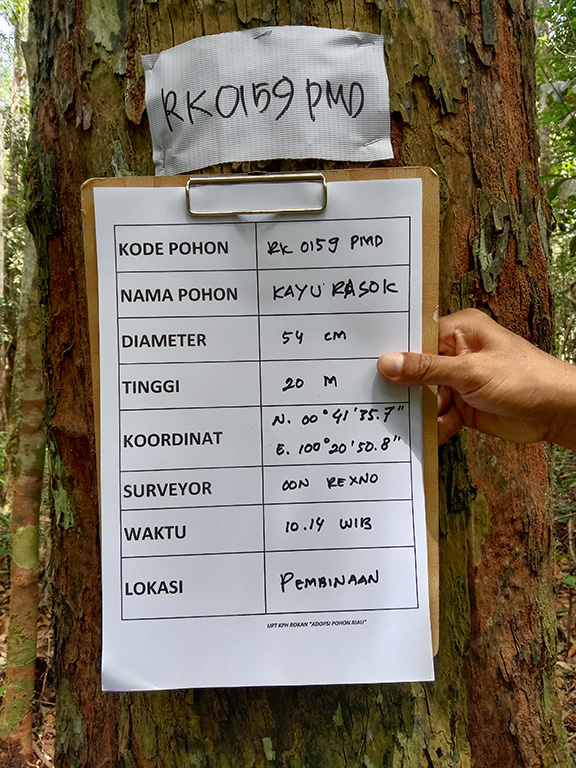 RK0159 PMD
KODE POHON RK 0159 PMD
NAMA POHON KAYU RASOK
DIAMETER 54 cm
TINGGI 20 M
KOORDINAT N. 00°41'35.7"
E. 100°20'50.8"
SURVEYOR OON REXNO
WAKTU 10.14 WIB
LOKASI PEMBINAAN
UPT KPH ROKAN "ADOPSI POHON RIAU"